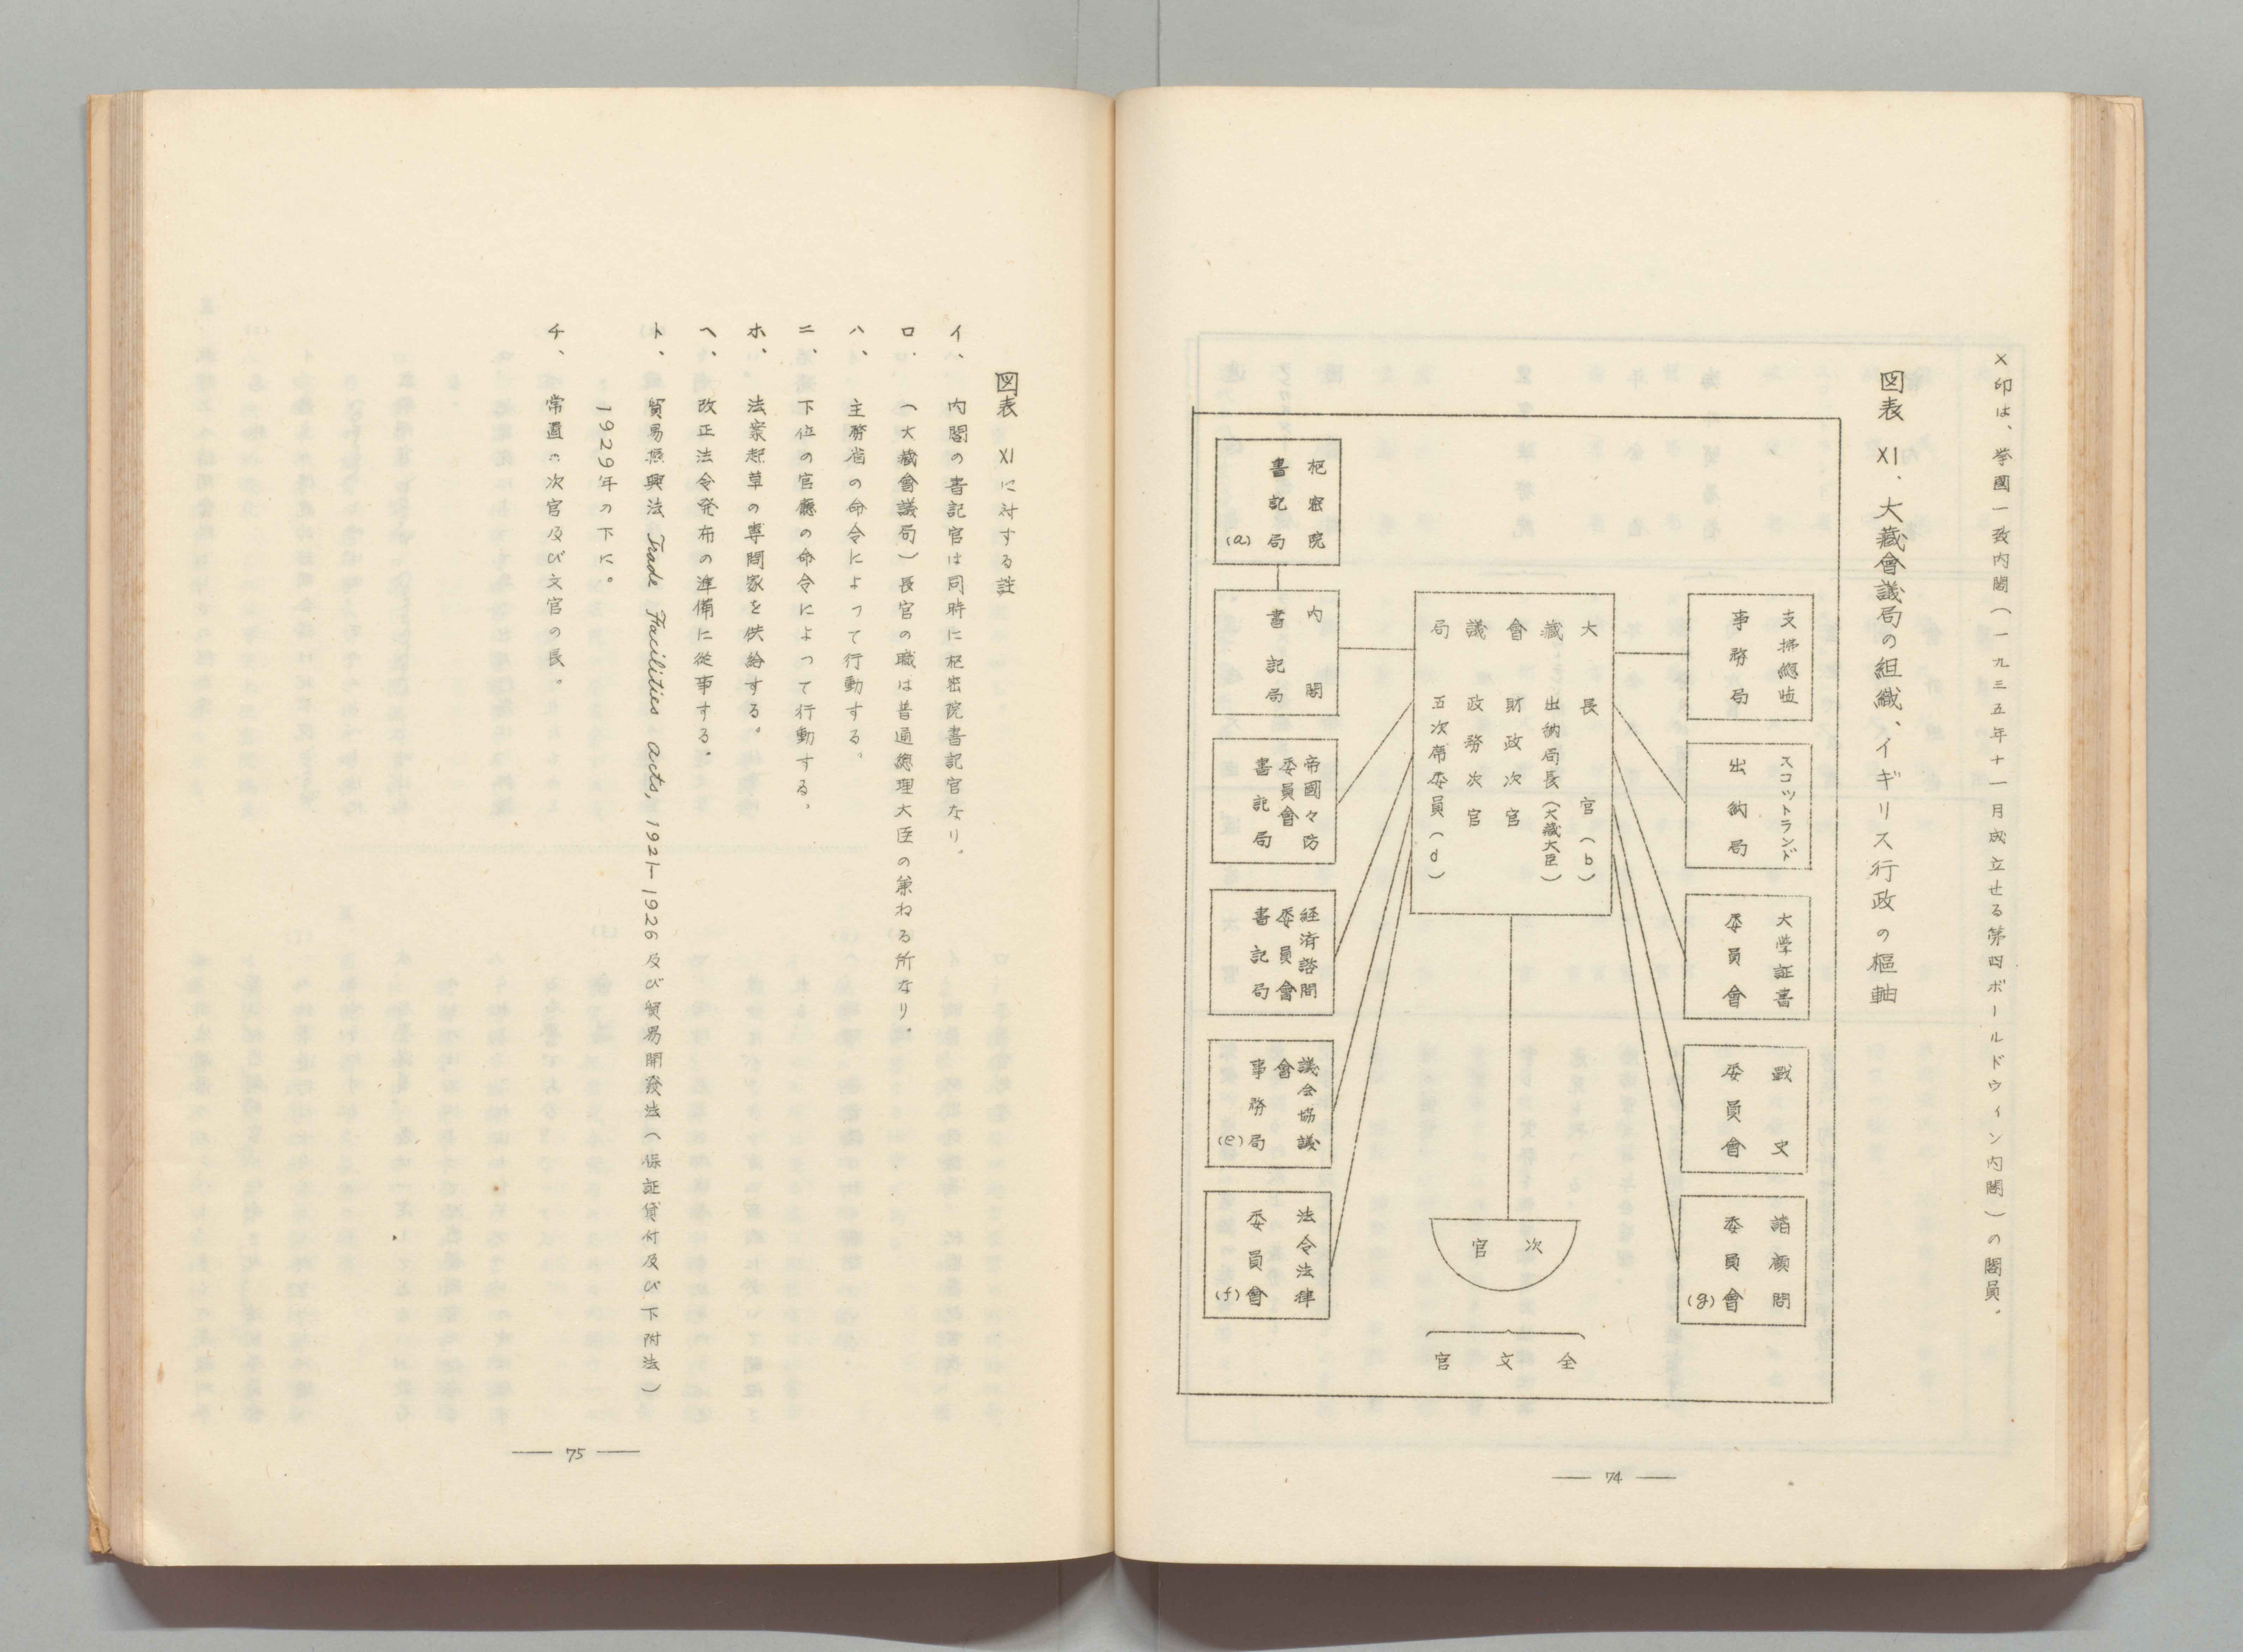 ×印は、挙國一致内閣(一九三五年十一月成立せる第四ボールドウィン内閣)の閣員。
図表 XI. 大藏會議局の組織、イギリス行政の樞軸
支拂總監
事務局
スコットランド
出納局
大學証書
委員會
戰史
委員會
諮顧問
委員會(g)
大藏會議局
長官(b)
出納局長(大藏大臣)
財政次官
政務次官
五次席委員(d)
次官
全文官
枢密院
書記局(a)
内閣
書記局
帝國々防
委員會
書記局
経済諮問
委員會
書記局
議会協議
會
事務局(e)
法令法律
委員會(f)
— 74 —
図表 XIに対する註
イ、内閣の書記官は同時に枢密院書記官なり。
ロ.(大藏會議局)長官の職は普通總理大臣の兼ねる所なり。
ハ、主務省の命令によって行動する。
ニ、下位の官廳の命令によって行動する。
ホ、法案起草の専問家を供給する。
ヘ、改正法令発布の準備に從事する。
ト、貿易振興法 Trade Facilities acts, 1921—1926 及び貿易開發法(保証貸付及び下附法)
1929年の下に。
チ、常置の次官及び文官の長。
— 75 —